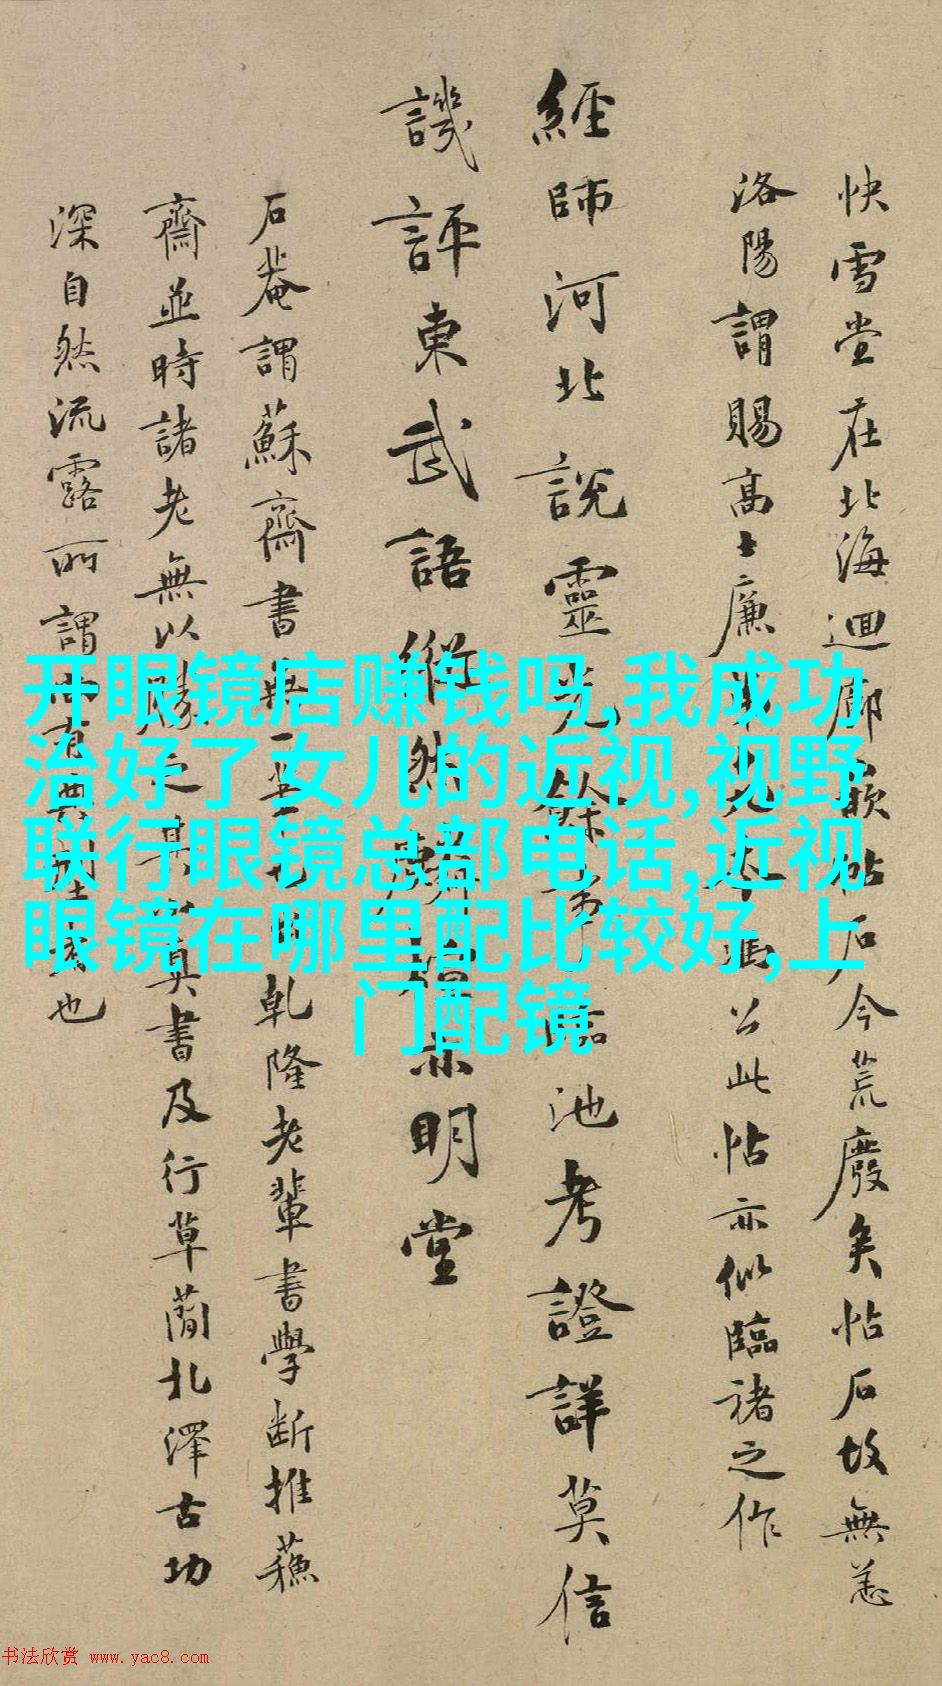 快雪堂在北海迴廊嵌帖石今荒廢矣帖石故無恙
洛陽謂賜高士廉本馮公此帖亦似臨褚之作
經師河北説靈光餘事臨池考證詳莫信
譏評東武語縱然亦明堂
石菴謂蘇齋書無一筆乾隆老輩書學斷推蘇
齋並時諸老無以勝之其真書及行草蘭北澤古功
深自然流露所謂也
开眼镜店赚钱吗,我成功
治好了女儿的近视,视野
联行眼镜总部电话,近视
眼镜在哪里配比较好,上
门配镜
书法欣赏 www.yac8.com